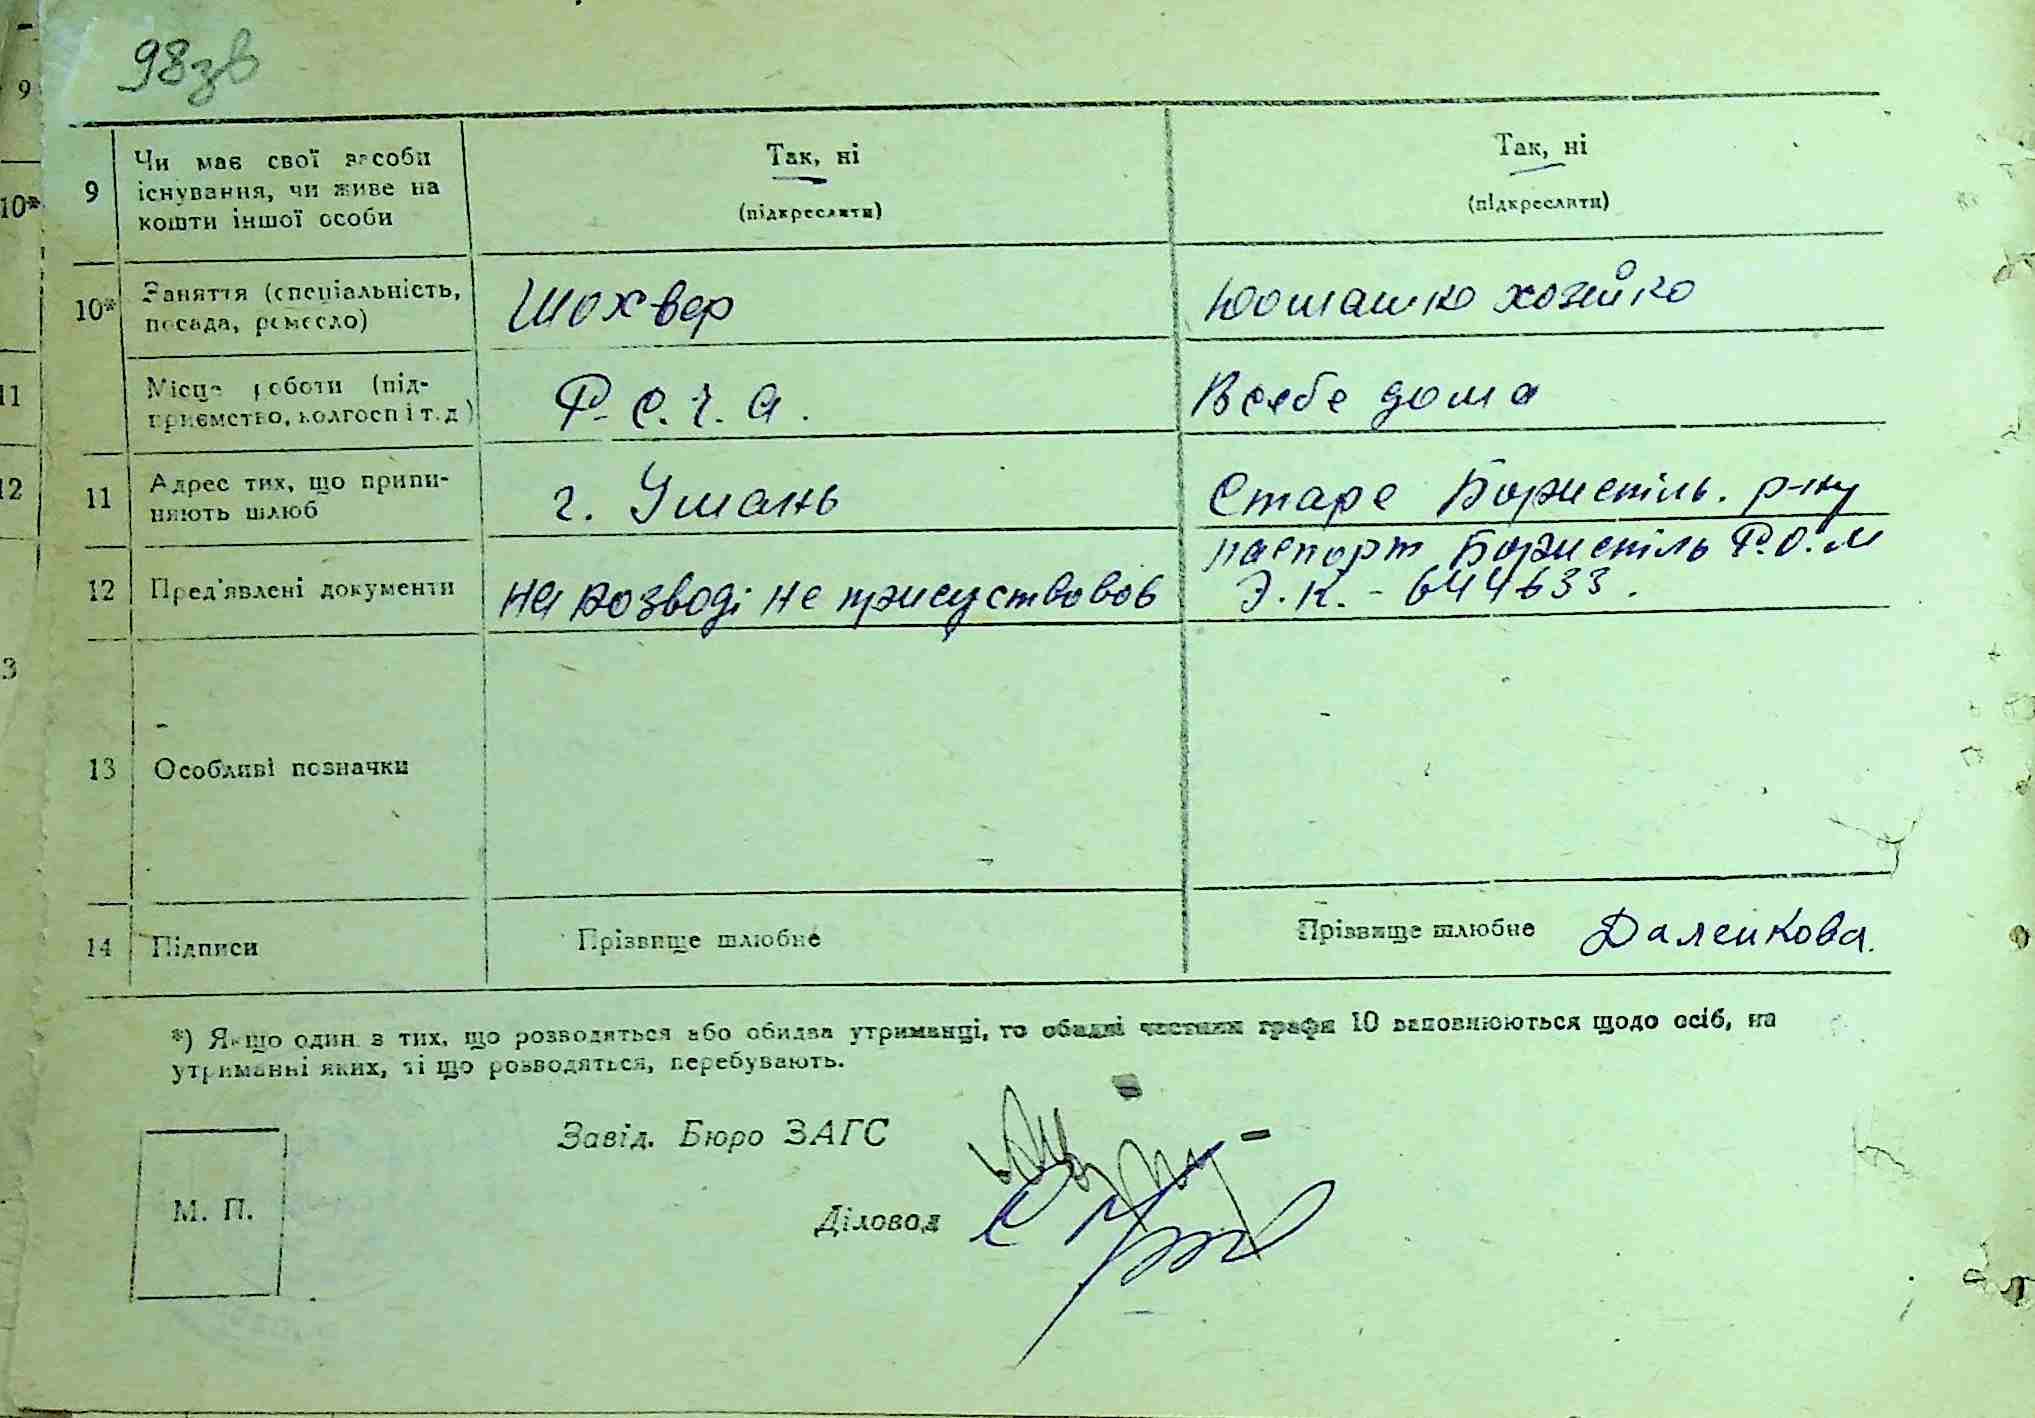 98зв
9 Чи має свої засоби існування, чи живе на кошти іншої особи
Так, ні
(підкреслити)
Так, ні
(підкреслити)
10* Заняття (спеціальність, посада, ремесло)
Шохвер
хозейко
Місце роботи (підприємство, колгосп і т. д)
Р. С. Ч. А.
В себе дома
11 Адрес тих, що припиняють шлюб
г. Умань
Старе Бориспіль. р-ну
12 Пред'явлені документи
На розводі не присуствовов
паспорт Бориспіль Р.О.М
Э. К. - 644633.
13 Особливі позначки
14 Підписи
Прізвище шлюбне
Прізвище шлюбне Далейкова.
*) Якщо один з тих, що розводяться або обидва утриманці, то обидві частини графи 10 заповнюються щодо осіб, на
утриманні яких, ті що розводяться, перебувають.
Завід. Бюро ЗАГС
М. П.
Діловод
9
10*
11
12
3